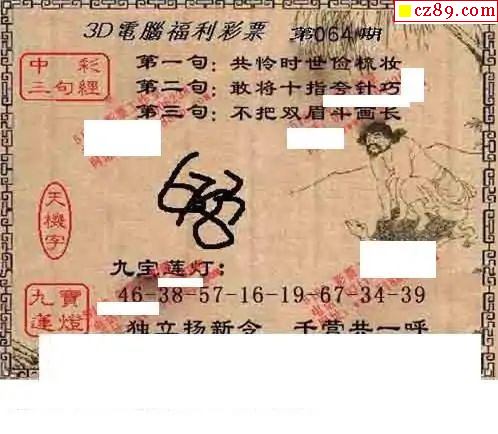 cz89.com
3D電腦福利彩票 第064期
中彩
三句經
第一句:共怜时世俭梳妆
第二句:敢将十指夸针巧
第三句:不把双眉斗画长
天機字
九宝莲灯:
九寶
蓮燈
46-38-57-16-19-67-34-39
独立扬新令 千营共一呼